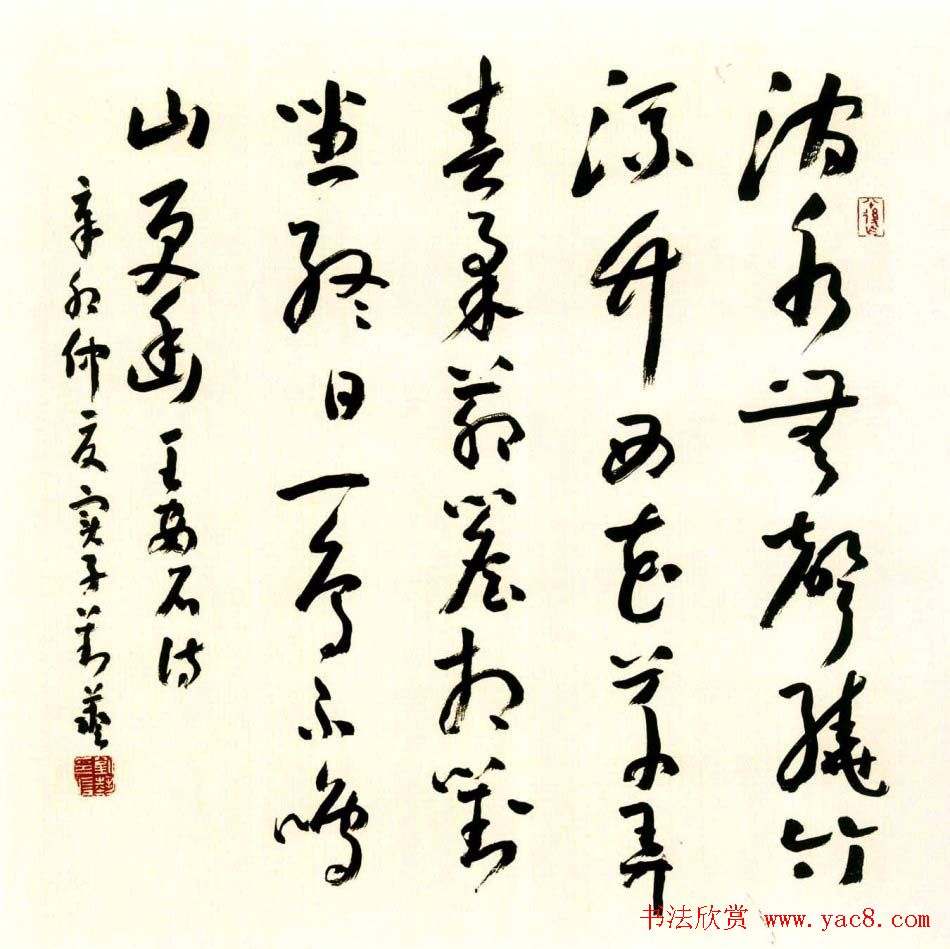 澗水無聲繞竹
流竹西花草弄
春柔茅簷相對
坐終日一鳥不鳴
山更幽 王安石詩
辛卯仲夏
书法欣赏 www.yac8.com